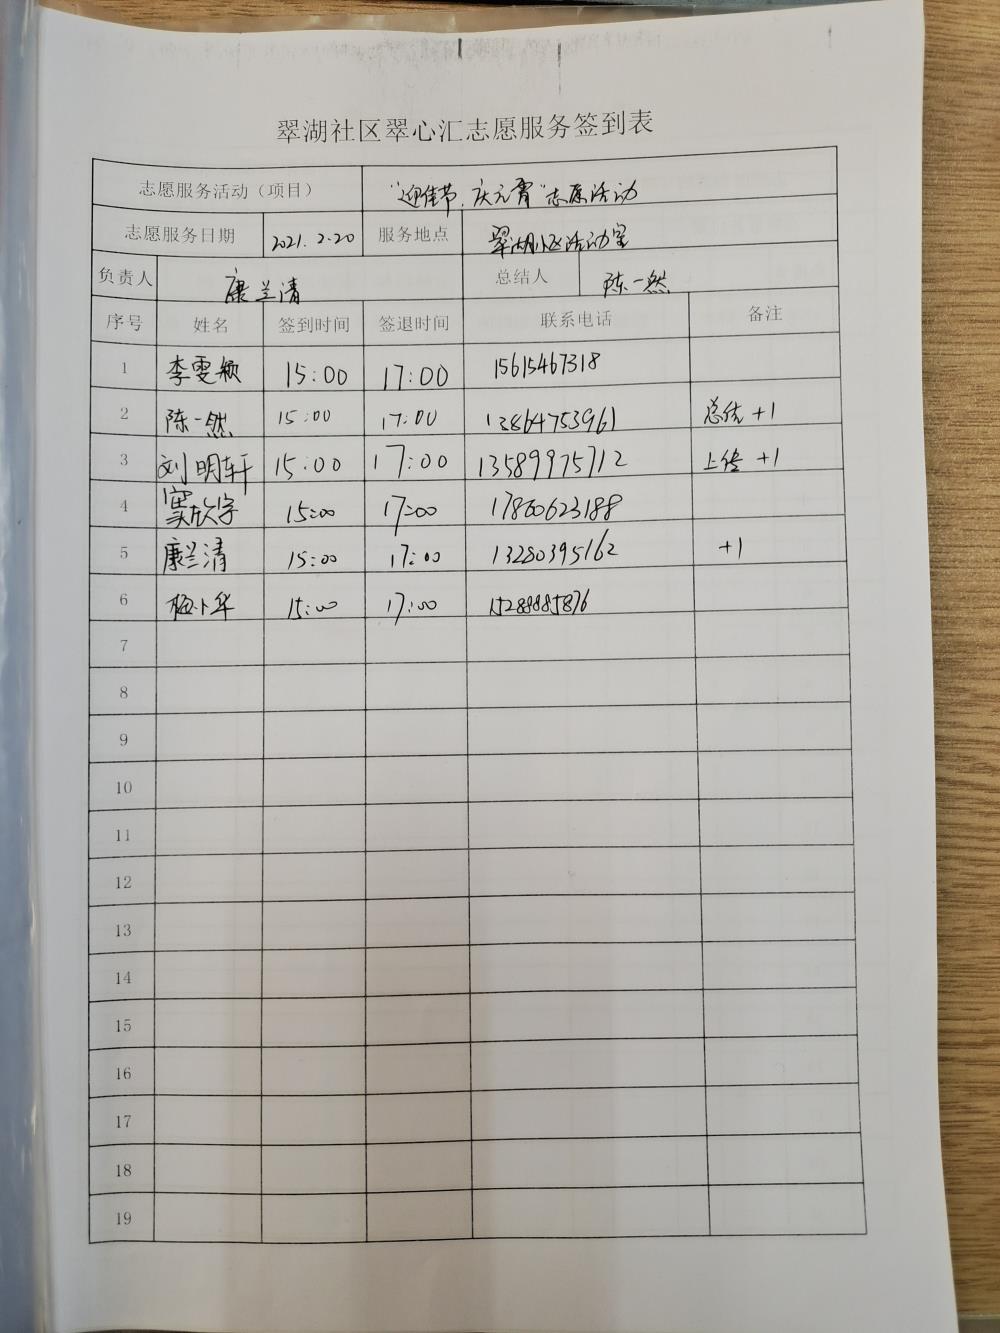 翠湖社区翠心汇志愿服务签到表
志愿服务活动（项目） “迎佳节，庆元宵”志愿活动
志愿服务日期 2021.2.20 服务地点 翠湖小区活动室
负责人 康兰清 总结人 陈一然
序号 姓名 签到时间 签退时间 联系电话 备注
1 李雯颖 15:00 17:00 15615467318
2 陈一然 15:00 17:00 13864753961 总结+1
3 刘明轩 15:00 17:00 13589975712 上传+1
4 窦欣宇 15:00 17:00 17860623188
5 康兰清 15:00 17:00 13280395162 +1
6 15:00 17:00 15288885876
7
8
9
10
11
12
13
14
15
16
17
18
19